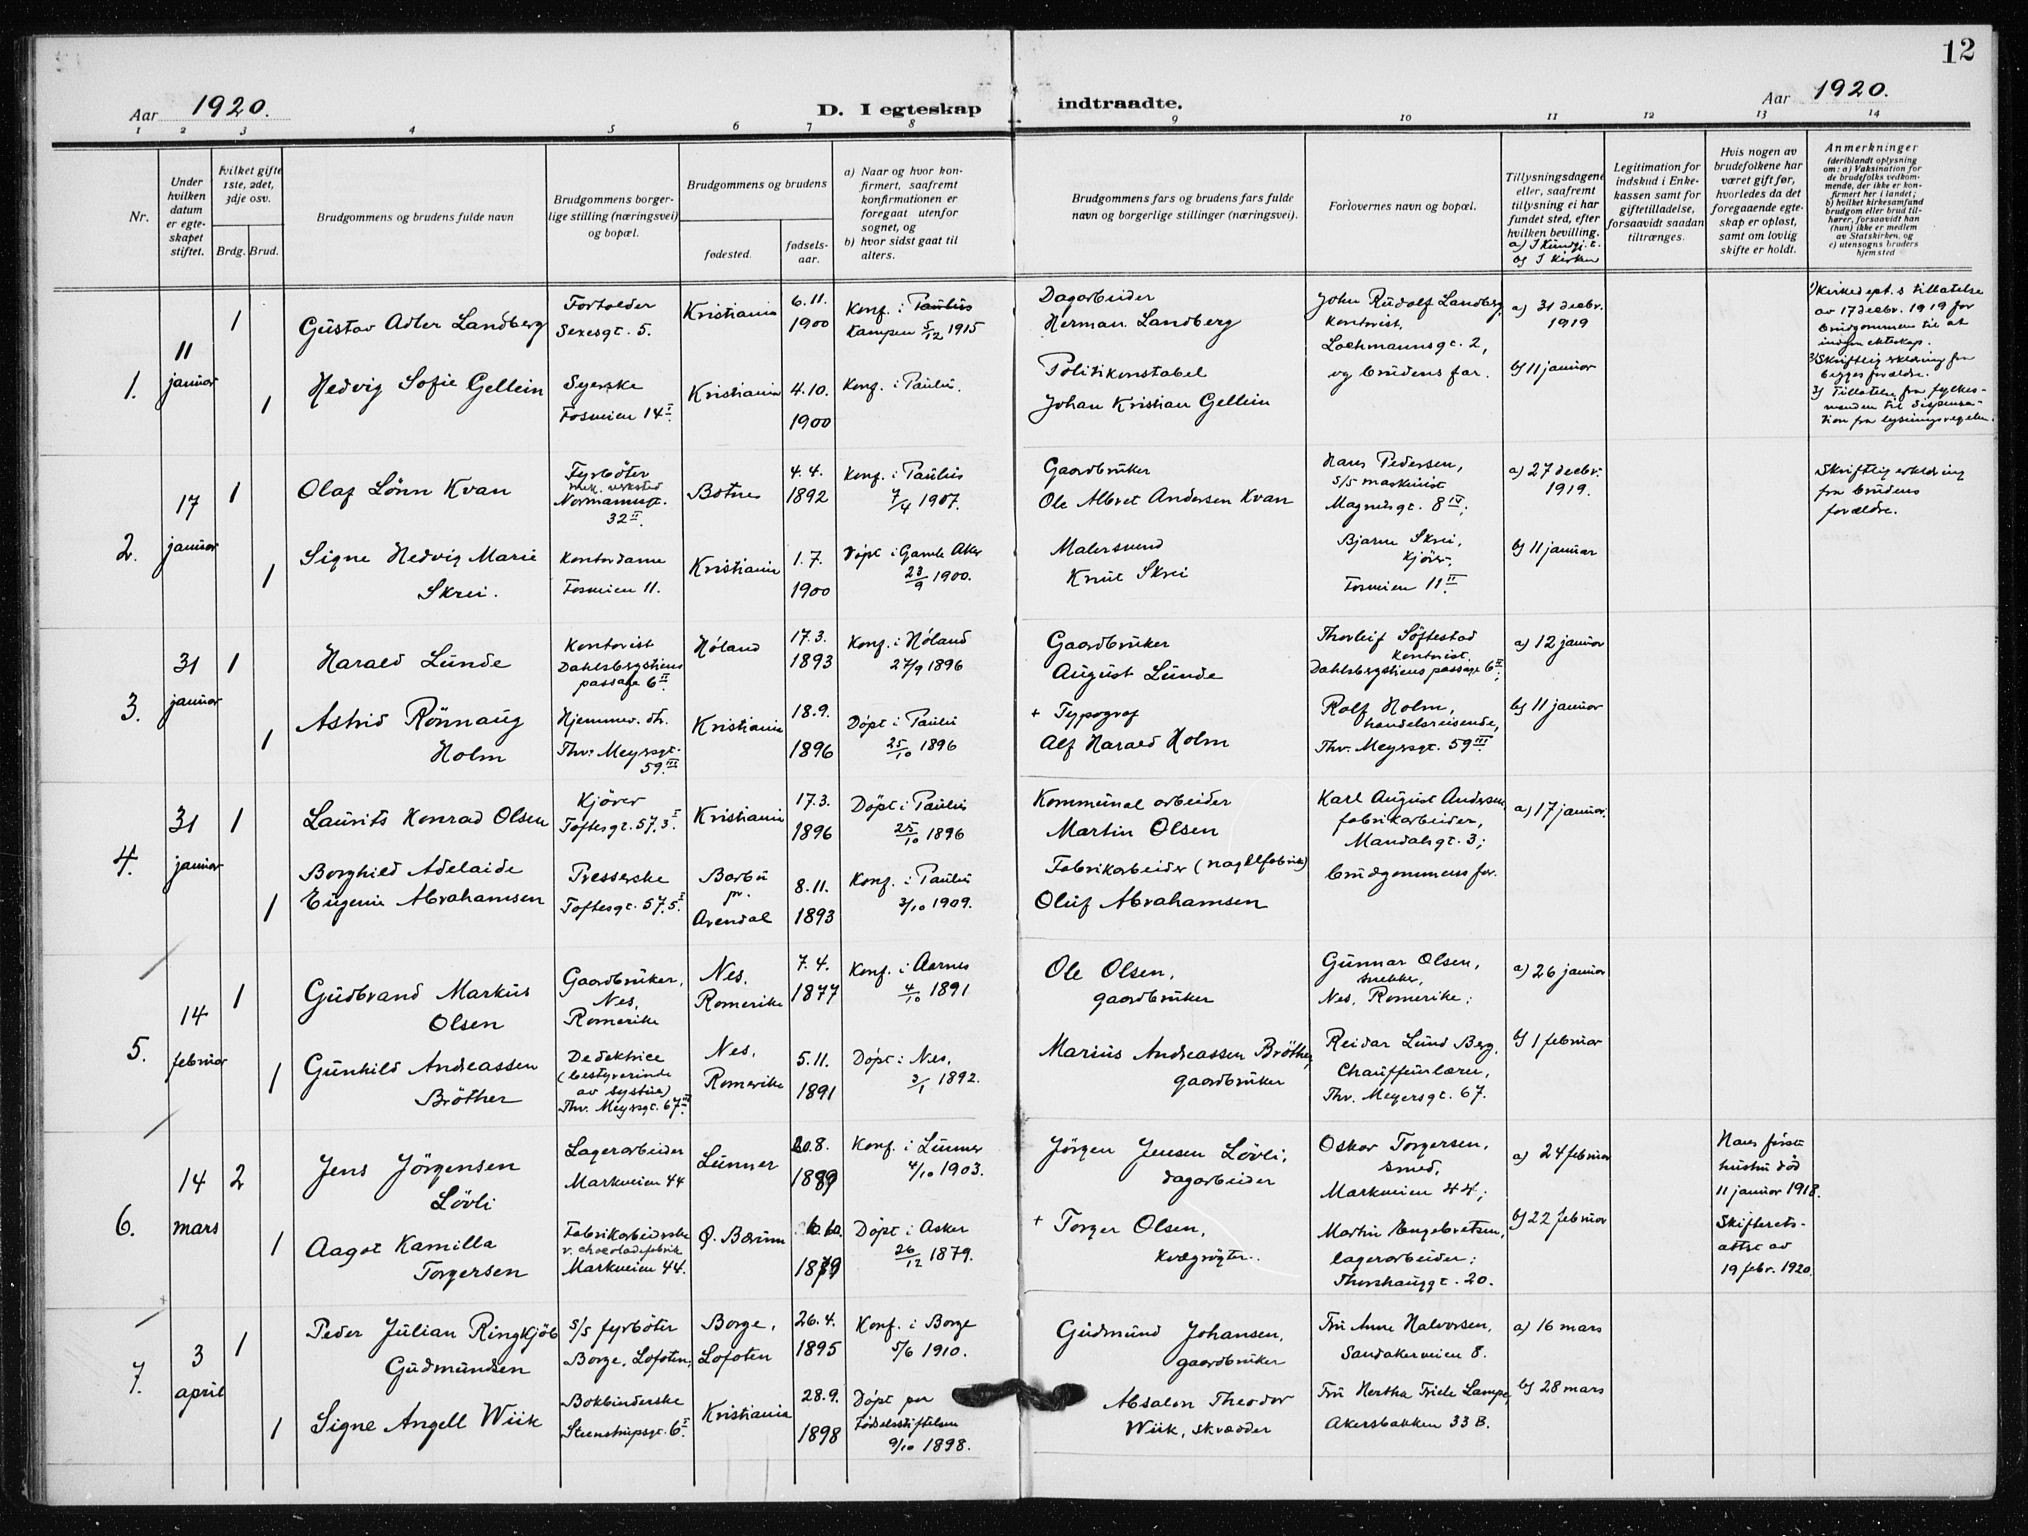 12
Aar 1920.
D. I egteskap indtraadte.
Aar 1920.
1 2 3 4 5 6 7 8 9 10 11 12 13 14
Nr.
Under hvilken datum er egte-skapet stiftet.
Hvilket gifte 1ste, 2det, 3dje osv.
Brdg. Brud.
Brudgommens og brudens fulde navn
Brudgommens borger-lige stilling (næringsvei) og bopæl.
Brudgommens og brudens
fødested.
fødsels-aar.
a) Naar og hvor kon-firmert, saafremt konfirmationen er foregaat utenfor sognet, og
b) hvor sidst gaat til alters.
Brudgommens fars og brudens fars fulde navn og borgerlige stillinger (næringsvei).
Forlovernes navn og bopæl.
Tillysningsdagene eller, saafremt tillysning ei har fundet sted, efter hvilken bevilling.
b) I Kirken
Legitimation for indskud i Enke-kassen samt for giftetilladelse, forsaavidt saadan tiltrænges.
Hvis nogen av brudefolkene har været gift før, hvorledes da det foregaaende egte-skap er opløst, samt om lovlig skifte er holdt.
Anmerkninger
(deriblandt oplysning om: a) Vaksination for de brudefolks vedkom-mende, der ikke er kon-firmert her i landet; b) hvilket kirkesamfund brudgom eller brud til-hører, forsaavidt han (hun) ikke er medlem av Statskirken, og c) utensogns bruders hjemsted
1.
11 januar
1
Gustav Adler Landberg
Fortolder
Sexesgt. 5.
Kristiania
6.11.
1900
Konf. i Paulus
Kampen 5/12 1915
Dagarbeider
Herman Landberg
John Rudolf Landberg,
kontorist,
Lochmannsgt. 2,
a) 31 decbr. 1919
1) Kirkedept.s tillatelse
av 17 decbr. 1919 for
brudgommen til at
indgaa ekteskap.
2) Skriftlig erklæring fra
begges forældre.
3) Tillatelse fra fylkes-
manden til dispensa-
tion fra lysningsreglen.
1
Hedvig Sofie Gellein
Syerske
Fosveien 14 I.
Kristiania
4.10.
1900
Konf. i Paulus.
Politikonstabel
Johan Kristian Gellein
og brudens far.
b) 11 januar
2.
17 januar
1
Olaf Lönn Kvan
Fyrböter
mek. verksted
Normannsgt.
32 II.
Botne
4.4.
1892
Konf. i Paulus
7/4 1907.
Gaardbruker
Ole Albret Andersen Kvan
Hans Pedersen,
s/s maskinist
Magnusgt. 8 IV;
a) 27 decbr. 1919.
Skriftlig erklæring
fra brudens
forældre.
1
Signe Hedvig Marie
Skrei.
Kontordame
Fosveien 11.
Kristiania
1.7.
1900
Döpt i Gamle Aker
23/9 1900.
Malersvend
Knut Skrei
Bjarne Skrei,
kjörer,
Fosveien 11 II.
b) 11 januar
3.
31 januar
1
Harald Lunde
Kontorist
Dahlsbergstiens
passage 6 II.
Höland
17.3.
1893
Konf. i Höland
27/9 1896
Gaardbruker
August Lunde
Thorleif Söftestad
kontorist.
Dahlsbergstiens passage 6 II;
a) 12 januar
1
Astrid Rönnaug
Holm
Hjemmev. dt.
Thv. Meyersgt.
59 III
Kristiania
18.9.
1896
Döpt i Paulus
25/10 1896
+ Typograf
Alf Harald Holm
Rolf Holm,
handelsreisende,
Thv. Meyersgt. 59 III.
b) 11 januar
4.
31 januar
1
Laurits Konrad Olsen
Kjörer
Toftesgt. 57.3 I.
Kristiania
17.3.
1896
Döpt i Paulus
25/10 1896
Kommunal arbeider
Martin Olsen
Karl August Andersen,
fabrikarbeider,
Mandalsgt. 3;
a) 17 januar.
1
Borghild Adelaide
Eugenie Abrahamsen
Presserske
Toftesgt. 57.5 I.
Barbu
pr.
Arendal
8.11.
1893
Konf. i Paulus
3/10 1909.
Fabrikarbeider (naglefabrik)
Oluf Abrahamsen
brudgommens far.
5.
14 februar
1
Gudbrand Markus
Olsen
Gaardbruker,
Nes,
Romerike
Nes.
Romerike
7.4.
1877
Konf. i Aarnes
4/10 1891
Ole Olsen,
gaardbruker
Gunnar Olsen,
snekker,
Nes, Romerike;
a) 26 januar
1
Gunhild Andreassen
Bröther
Dedektrice
(bestyrerinde
av systue)
Thv. Meyersgt. 67 III.
Nes.
Romerike
5.11.
1891
Döpt i Nes.
3/1 1892.
Marius Andreassen Bröther,
gaardbruker
Reidar Lund Berg,
Chauffeurlærer,
Thv. Meyersgt. 67.
b) 1 februar
6.
14 mars
2
Jens Jörgensen
Lövli
Lagerarbeider
Markveien 44
Lunner
20.8.
1889
Konf. i Lunner
4/10 1903.
Jörgen Jensen Lövli,
dagarbeider
Oskar Torgersen,
smed,
Markveien 44;
a) 24 februar
Hans første
hustru död
11 januar 1918.
Skifterets-
attst av
19 febr. 1920.
1
Aagot Kamilla
Torgersen
Fabrikarbeiderske
v. chocoladefabrik
Markveien 44.
Ö. Bærum
1879
Döpt i Asker
26/12 1879.
+ Torger Olsen,
kvægrøgter.
Martin Engebretsen,
lagerarbeider;
Thorshauggt. 20.
b) 22 februar
7.
3 april
1
Peder Julian Ringkjöb
Gudmundsen
s/s fyrböter
Borge, Lofoten,
Borge,
Lofoten
26.4.
1895
Konf. i Borge
5/6 1910.
Gudmund Johansen,
gaardbruker
Fru Anne Halvorsen,
Sandakerveien 8.
a) 16 mars
1
Signe Angell Wiik
Bokbinderske
Steenstrupsgt. 6 I.
Kristiania
28.9.
1898
Döpt paa
Födselsstiftelsen
9/10 1898.
Absalon Theodor
Wiik, skrædder
Fru Hertha Lampe,
Akersbakken 33 B.
b) 28 mars